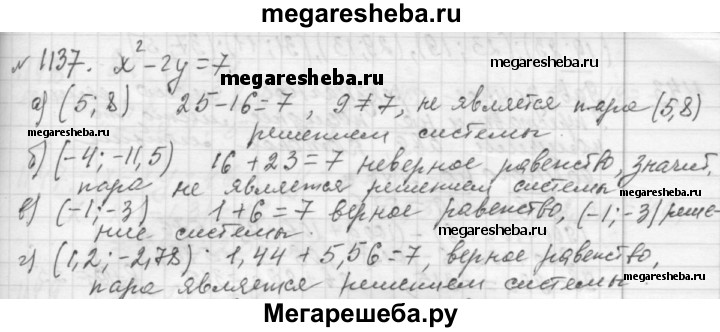 megaresheba.ru
№ 1137. x² - 2y = 7
а) (5; 8) 25 - 16 = 7, 9 ≠ 7, не является пара (5,8)
megaresheba.ru
решением системы.
megaresheba.ru
б) (-4; -11,5) 16 + 23 = 7 неверное равенство, значит,
пара не является решением системы
megaresheba.ru
в) (-1; -3) 1 + 6 = 7 верное равенство, (-1; -3) реше-
ние системы.
megaresheba.ru
г) (1,2; -2,78) · 1,44 + 5,56 = 7, верное равенство,
megaresheba.ru
пара является решением системы.
Мегарешеба.ру